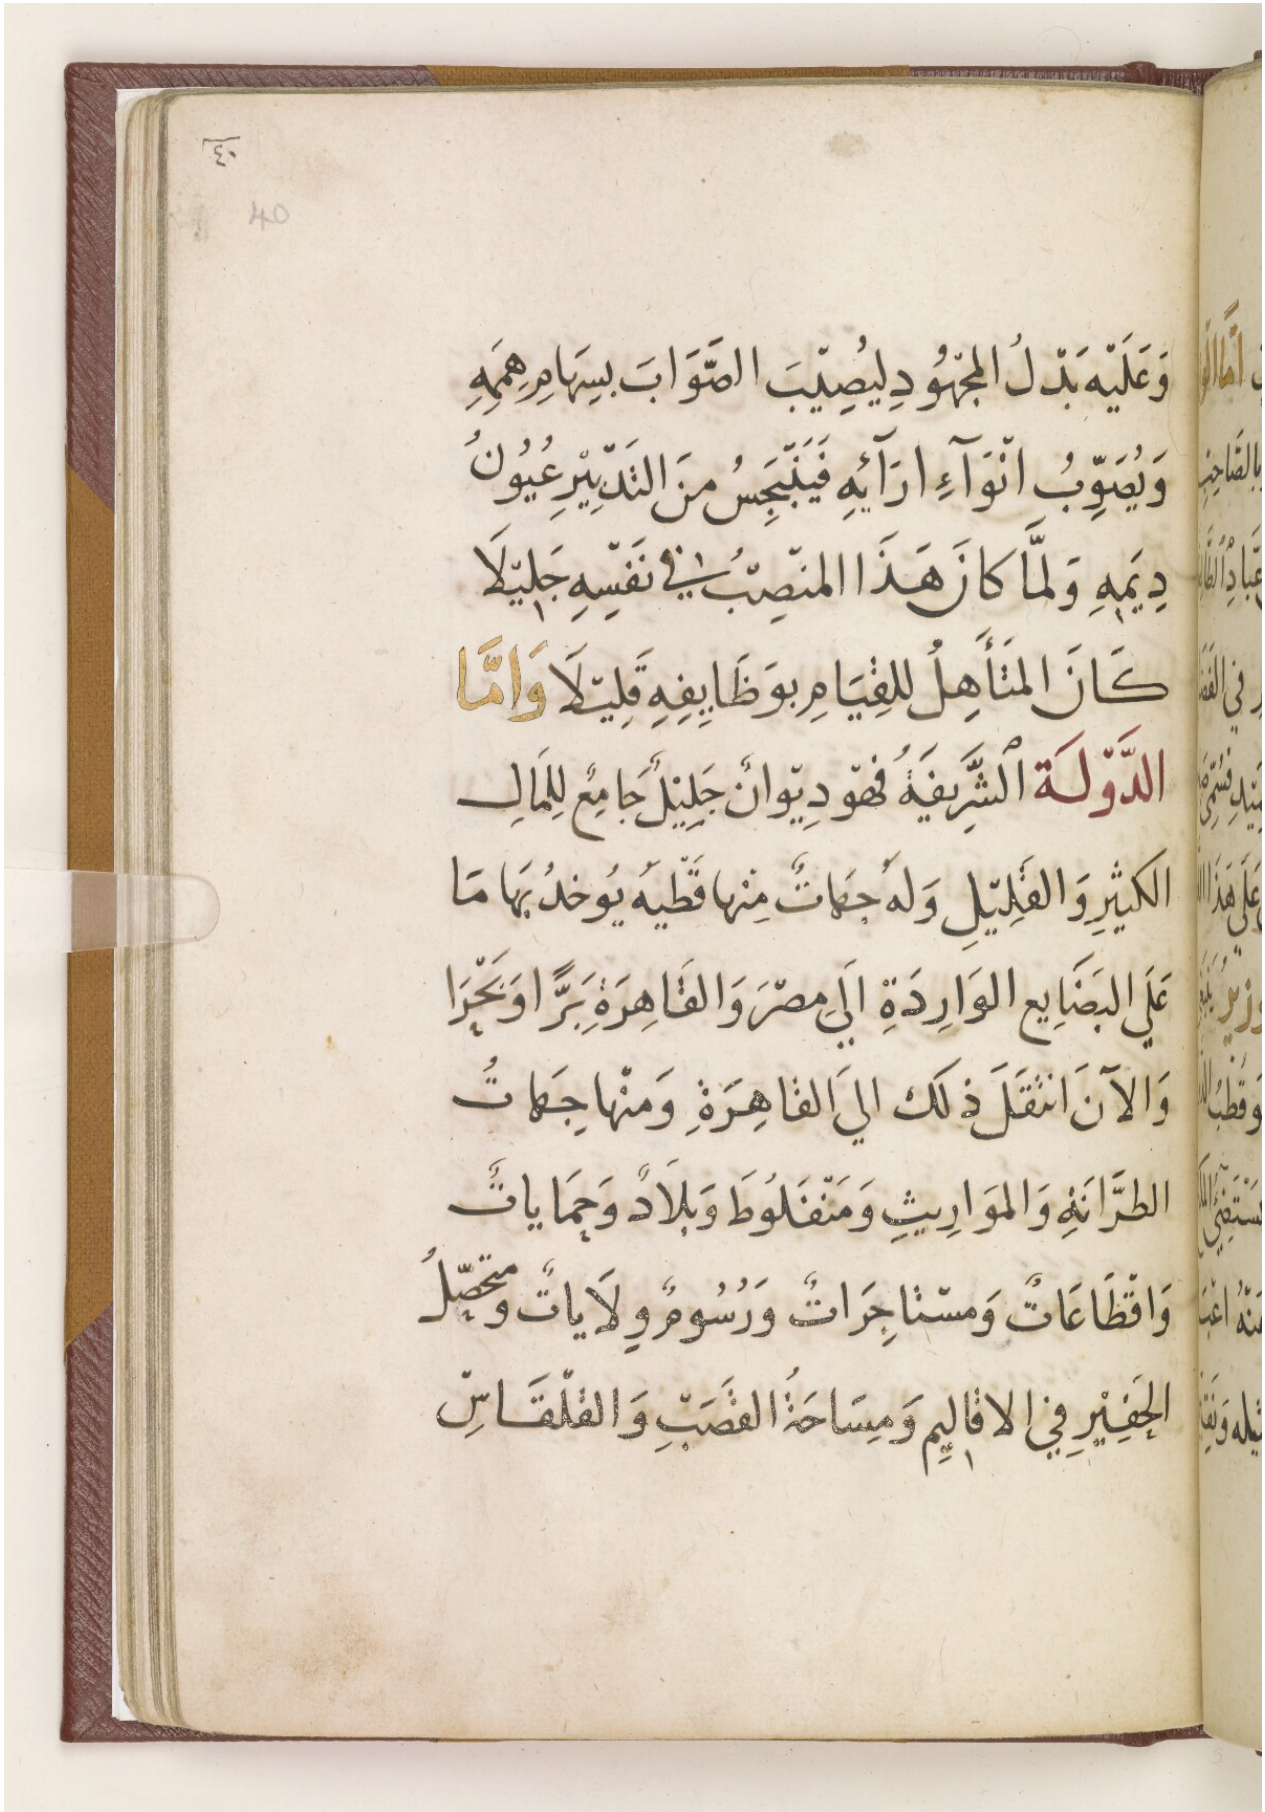 ٤٠
40
وَعَلَيْه بَذْلُ المجْهُودِ لِيُصِيْبَ الصَّوَابَ بسِهَامِ هِمَمِهِ
وَيُصَوِّبُ انْوَآءِ ارَآئِهِ فَيَنْبَجِسُ منَ التَدْبِيْرِ عُيُونُ
دِيَمِهِ وَلمَّا كانَ هَذَا المنصِبُ فِي نَفْسِهِ جَلِيْلَا
كَانَ المتَأَهِلُ للقِيَامِ بوَظَايِفِهِ قَلِيْلَا وَامَّا
الدَّوْلَة الشَّرِيفَةُ فهوَ دِيْوانٌ جَلِيْلٌ جَامِعٌ لِلمَالِ
الكثِيرِ وَالقَلِيْلِ وَلهُ جهَاتٌ مِنْها قَطْيهُ يُوخذُ بهَا مَا
عَلَى البَضَايِع الوَارِدَةِ الَي مصْرَ وَالقَاهِرَةِ بَرًّا وَبَحْرَا
وَالآنَ انتْقَلَ ذلَك اليَ القاهِرَةِ وَمنْها جِهاتُ
الطرَّانَةِ وَالموَارِيثِ وَمَنْفَلُوطَ وَبلَادٌ وَحِمَاياتٌ
وَاقْطَاعَاتٌ وَمسْتاجِرَاتٌ وَرُسُومٌ وِلَاياتٌ ومتحَصِّلُ
الحَفِيْرِ فِي الاقالِيمِ وَمِسَاحَةُ القصَبِ وَالقلْقَاسِ